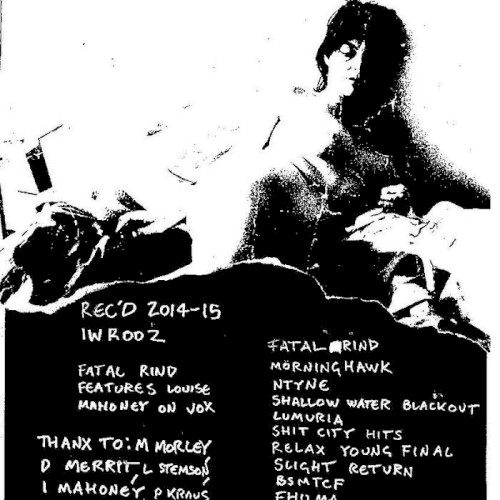 REC'D 2014-15
IWROOZ
FATAL RIND
FEATURES LOUISE
MAHONEY ON VOX
THANX TO: M MORLEY
D MERRIT L STEMSON
I MAHONEY, P KRAUS
FATAL RIND
MÖRNINGHAWK
NTYNE
SHALLOW WATER BLACKOUT
LUMURIA
SHIT CITY HITS
RELAX YOUNG FINAL
SLIGHT RETURN
BSMTCF